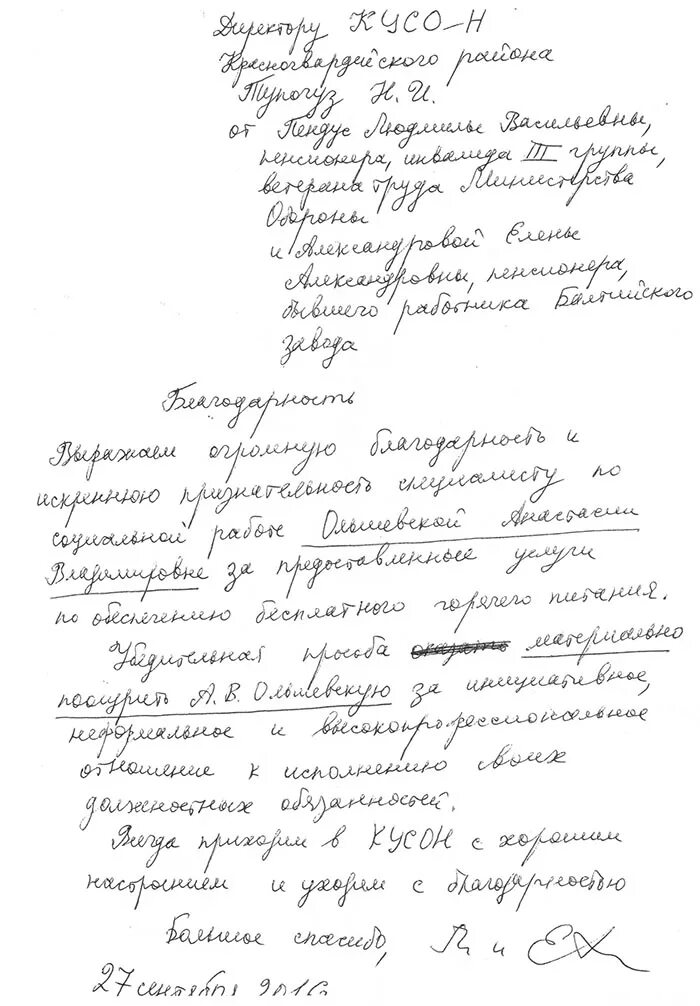 Директору КУСО-Н
Красногвардейского района
Тупогуз Н.И.
от Пендус Людмилы Васильевны,
пенсионера, инвалида III группы,
ветерана труда Министерства
Обороны
и Александровой Елены
Александровны, пенсионера,
бывшего работника Балтийского
завода
Благодарность
Выражаем огромную благодарность и
искреннюю признательность специалисту по
социальной работе Ольшевской Анастасии
Владимировне за предоставленное услуги
по обеспечению бесплатного горячего питания.
Убедительная просьба оказать материально
поощрить А.В. Ольшевскую за инициативное,
неформальное и высокопрофессиональное
отношение к исполнению своих
должностных обязанностей.
Всегда приходим в КУСОН с хорошим
настроением и уходим с благодарностью
Большое спасибо, и
27 сентября 2016